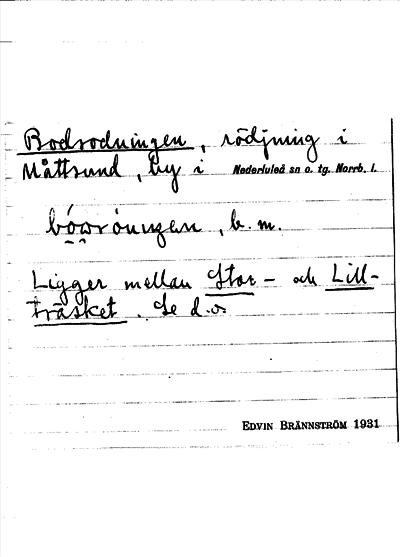 Bodrodningen, rödjning i
Måttsund, by i Nederluleå sn o. tg. Norrb. l.
b. m.
Ligger mellan Stor- och Lill-
träsket. Se d.o.
EDVIN BRÄNNSTRÖM 1931